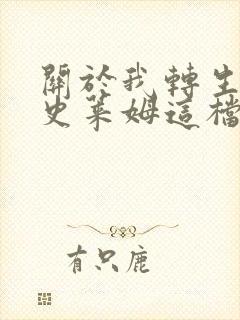 關於我轉生
史萊姆這檔
有只鹿